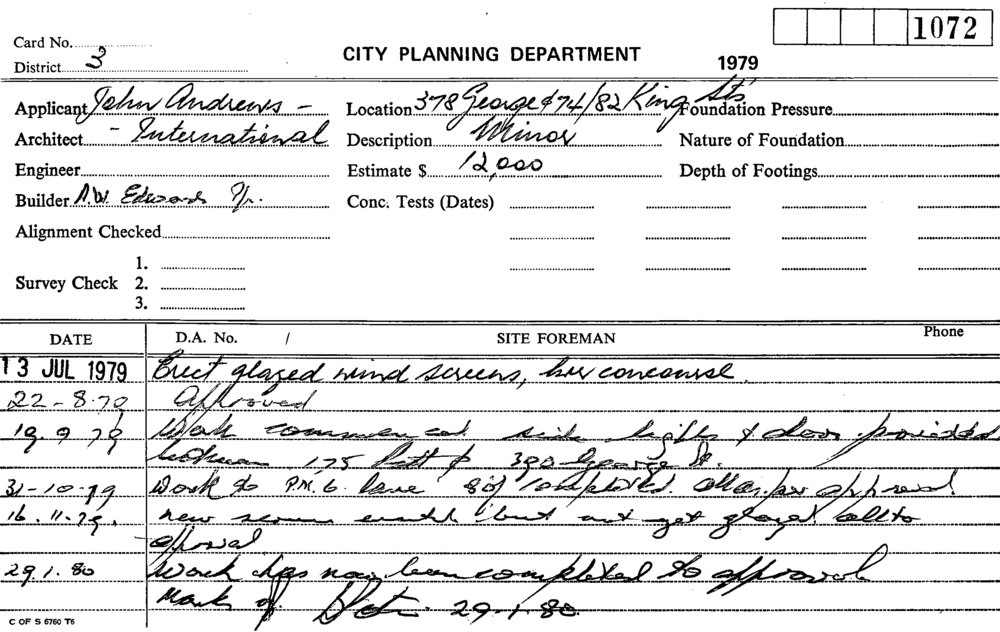 1072
Card No.
CITY PLANNING DEPARTMENT
1979
District 3
Applicant John Andrews –
Location 378 George & 74/82 King Sts
Foundation Pressure
Architect - International
Description Minor
Nature of Foundation
Engineer
Estimate $ 12,000
Depth of Footings
Builder A.W. Edwards
Conc. Tests (Dates)
Alignment Checked
1.
Survey Check 2.
3.
DATE D.A. No. / SITE FOREMAN Phone
13 JUL 1979 Erect glazed wind screens, concourse.
22-8-79 Approved
19.9.79 Work commenced side & door provided
between 175 Pitt & 390 George St.
31-10-79 Work to P.M.G. Lane 80% completed. all as per approval
16.11.79. new screen but not yet glazed all to
approval
29.1.80 Work has now been completed to approval
Mark of 29-1-80.
C OF S 6760 T6